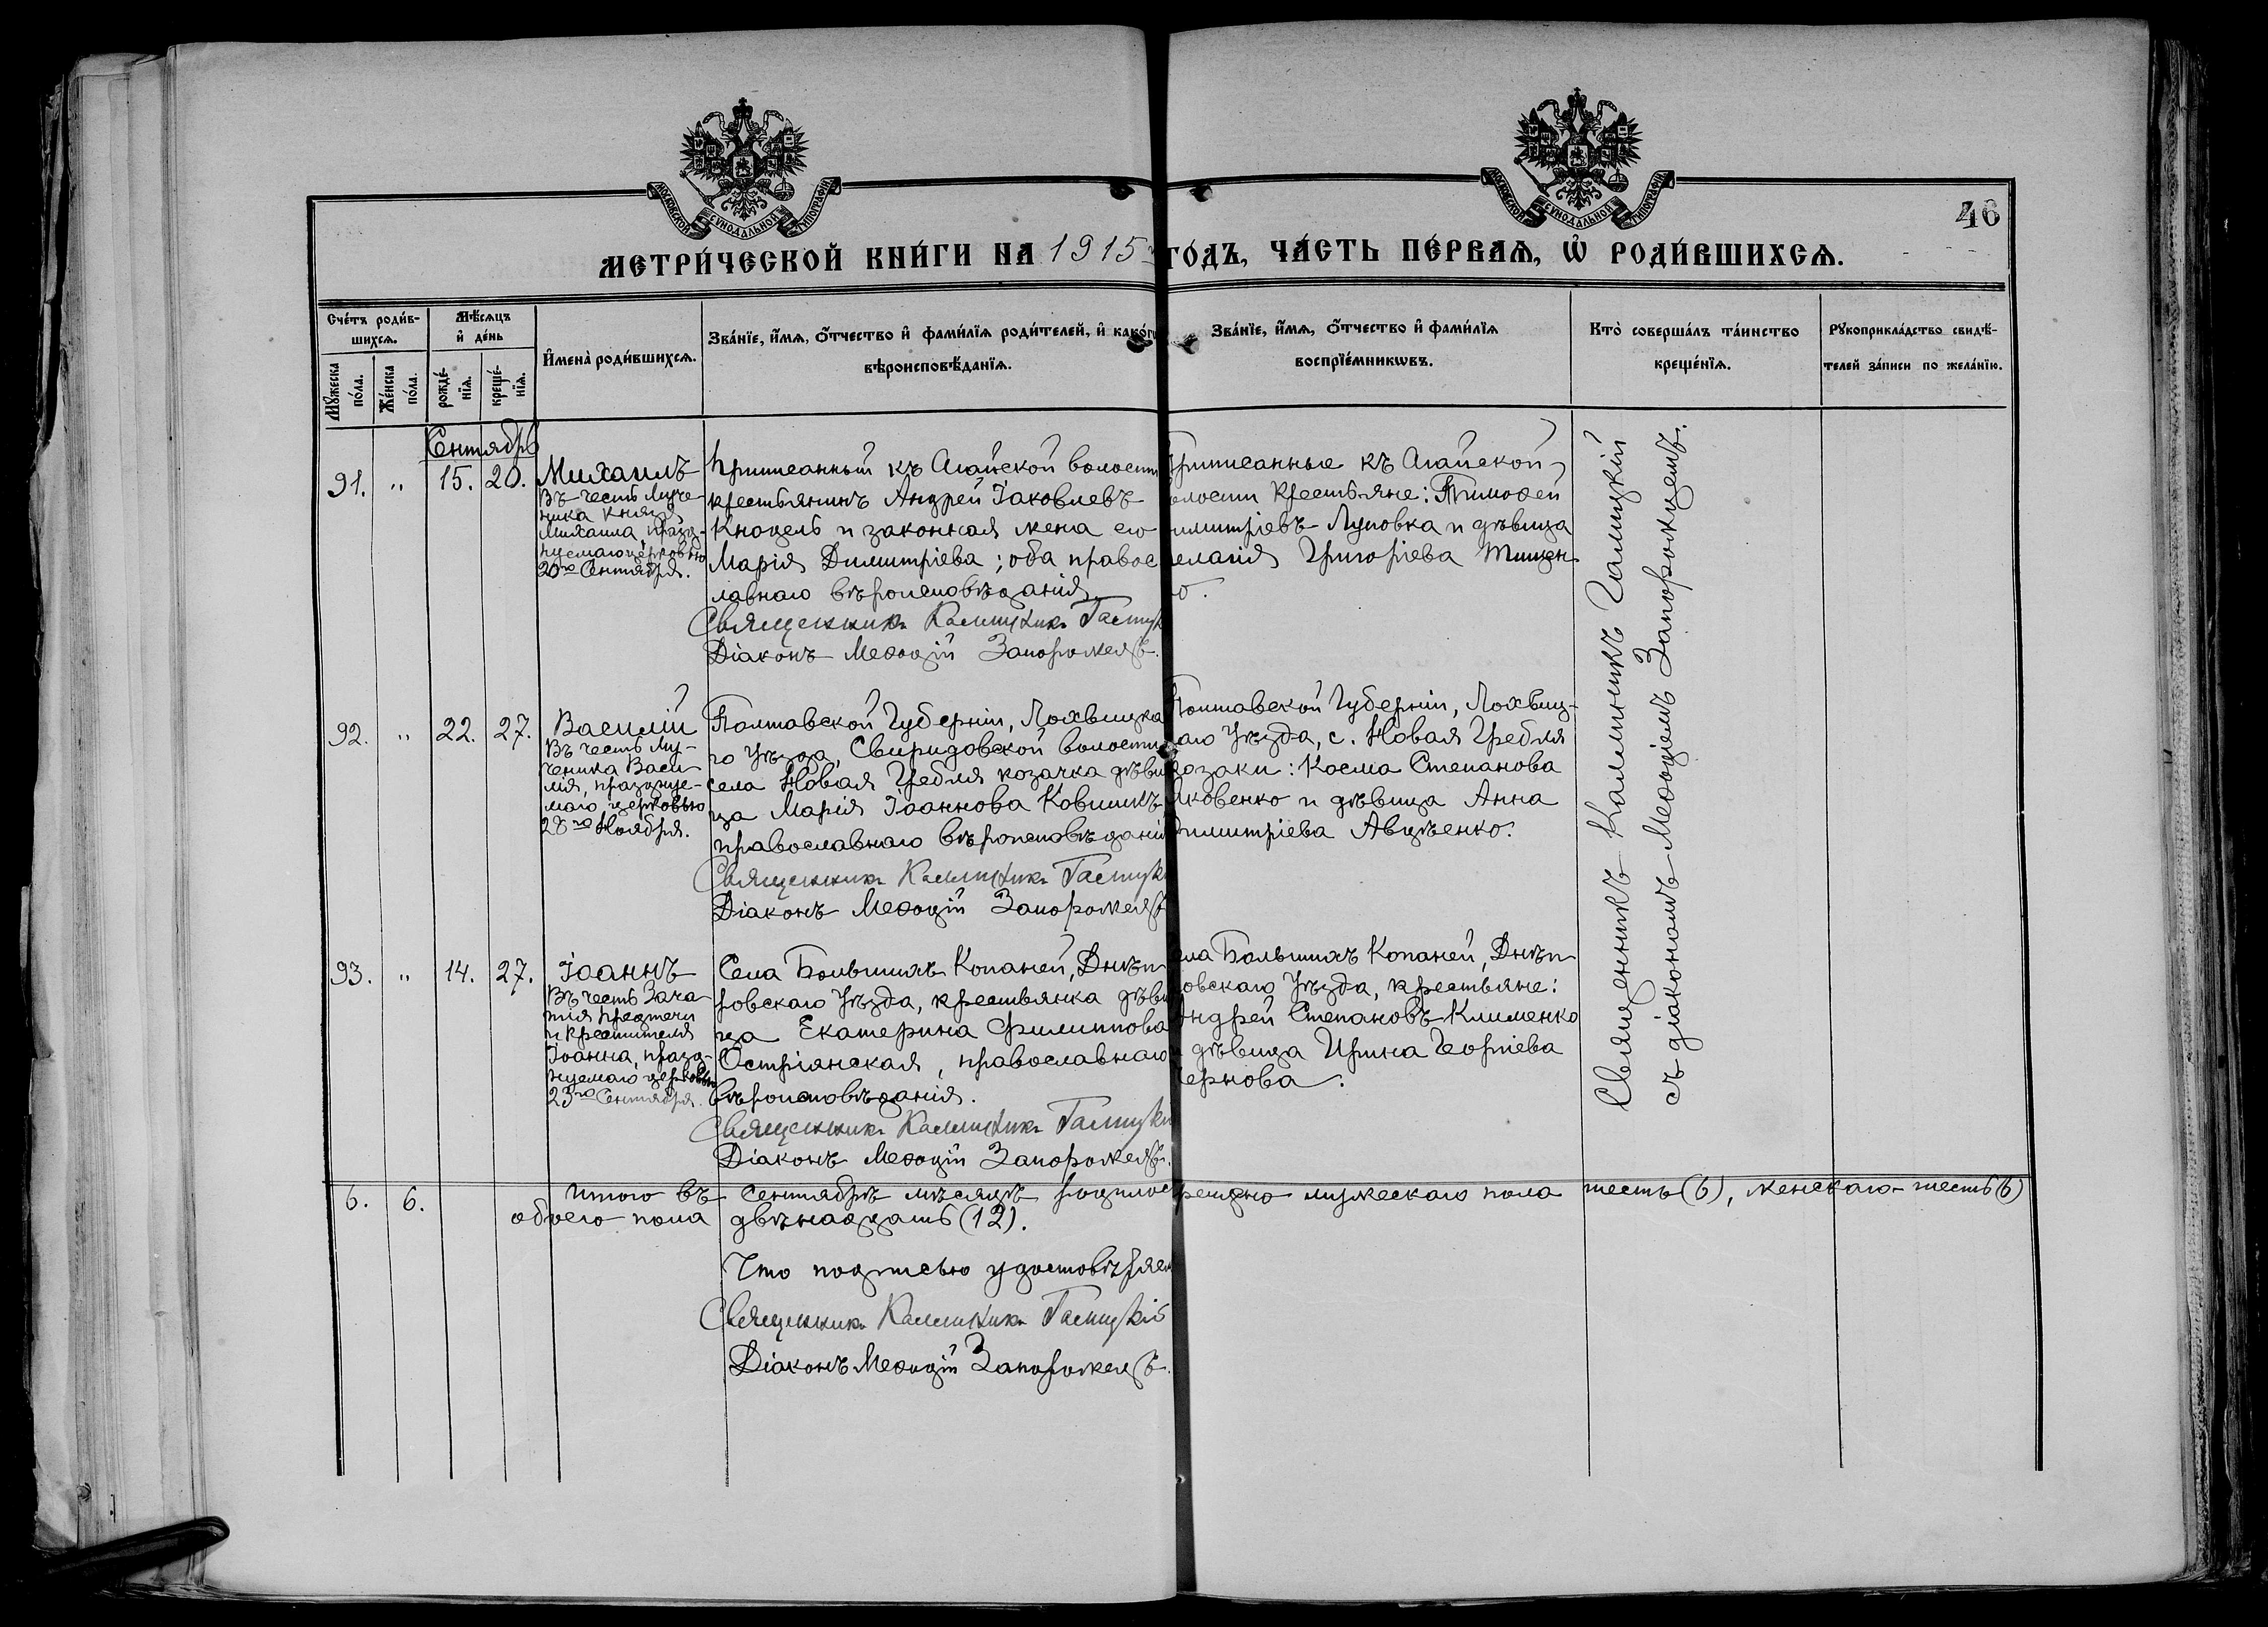 МОСКОВСКОЙ СѴНОДАЛЬНОЙ ТИПОГРАФІИ
МОСКОВСКОЙ СѴНОДАЛЬНОЙ ТИПОГРАФІИ
46
МЕТРИ́ЧЕСКОЙ КНИ́ГИ НА 1915 ГО́ДЪ, ЧА́СТЬ ПЕ́РВАѦ, Ѡ҆ РОДИ́ВШИХСѦ.
Сче́тъ роди́в-
шихсѧ.
Мꙋ́жеска по́ла.
Же́нска по́ла.
Мѣ́сѧцъ
и҆ де́нь
рожде́-
нїѧ.
креще́-
нїѧ.
И҆мена̀ роди́вшихсѧ.
Зва́нїе, и҆́мѧ, о҆́тчество и҆ фами́лїѧ роди́телей, и҆ како́гѡ
вѣроисповѣ́данїѧ.
Зва́нїе, и҆́мѧ, о҆́тчество и҆ фами́лїѧ
воспрїе́мникѡвъ.
Кто̀ соверша́лъ та́инство
креще́нїѧ.
Рꙋкоприкла́дство свидѣ́-
телей за́писи по жела́нїю.
Сентябрь
91. " 15. 20.
Михаилъ
Въ честь Муче-
ника Князя
Михаила, празд-
нуемаго церковью
20го Сентября.
Приписанный къ Агайской волости
крестьянинъ Андрей Іаковлевъ
Кнодель и законная жена его
Марія Димитріева; оба правос
лавнаго вѣроисповѣданія.
Священникъ Каллиникъ Галицк
Діаконъ Меѳодій Запорожецъ.
Приписанные къ Агайской
волости крестьяне: Тимоѳей
имитріевъ Луповка и дѣвица
елагія Григоріева Тищен-
о.
92. " 22. 27.
Василій
Въ честь Му-
ченика Васи-
лія, празднуе-
маго церковью
28го Ноября.
Полтавской Губерніи, Лохвицка
го Уѣзда, Свиридовской волости
села Новая Гребля козачка дѣви
ца Марія Іоаннова Ковшикъ
православнаго вѣроисповѣдані
Священникъ Каллиникъ Галицк
Діаконъ Меѳодій Запорожецъ
Полтавской Губерніи, Лохвиц-
каго Уѣзда, с. Новая Гребля
козаки: Косма Степанова
Яковенко и дѣвица Анна
Димитріева Авдѣенко.
93. " 14. 27.
Іоаннъ
Въ честь Зача-
тія Предтечи
и Крестителя
Іоанна, празд-
нуемаго церковью
23го Сентября.
Села Большихъ Копаней, Днѣп-
ровскаго Уѣзда, крестьянка дѣви
ца Екатерина Филиппова
Остріянская, православнаго
вѣроисповѣданія.
Священникъ Каллиникъ Галицкі
Діаконъ Меѳодій Запорожецъ.
ела Большихъ Копаней, Днѣп-
ровскаго Уѣзда, крестьяне:
Андрей Степановъ Клименко
и дѣвица Ирина Георгіева
Чернова.
Священникъ Каллиникъ Галицкій
съ діакономъ Меѳодіемъ Запорожцемъ.
6. 6. Итого въ Сентябрѣ мѣсяцѣ родилос рещено мужескаго пола шесть (6), женскаго шесть (6)
обоего пола двѣнадцать (12).
Что подписью удостовѣряем
Священникъ Каллиникъ Галицкій
Діаконъ Меѳодій Запорожецъ.